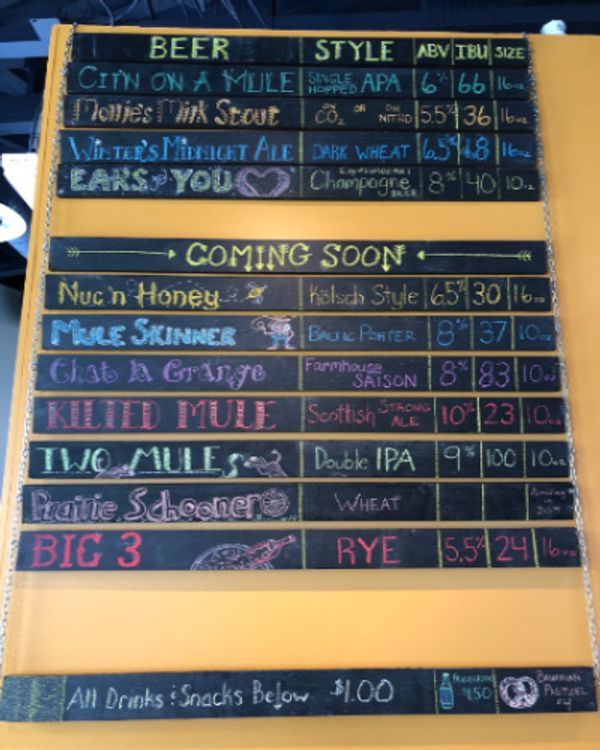 BEER STYLE ABV IBU SIZE
CIT'N ON A MULE SINGLE HOPPED APA 6% 66 16oz
Mollie's Milk Stout ON CO2 OR ON NITRO 5.5% 36 16oz
WINTER'S MIDNIGHT ALE DARK WHEAT 6.5% 18 16oz
EARS YOU Champagne BEER 8% 40 10oz
COMING SOON
Nuc'n Honey Kölsch Style 6.5% 30 16oz
MULE SKINNER BALTIC PORTER 8% 37 10oz
Chat la Grange Farmhouse SAISON 8% 83 10oz
KILTED MULE Scottish STRONG ALE 10% 23 10oz
TWO MULES Double IPA 9% 100 10oz
Prairie Schooner WHEAT
BIG 3 RYE 5.5% 24 16oz
All Drinks & Snacks Below $1.00 $1.50 BAVARIAN PRETZEL $4